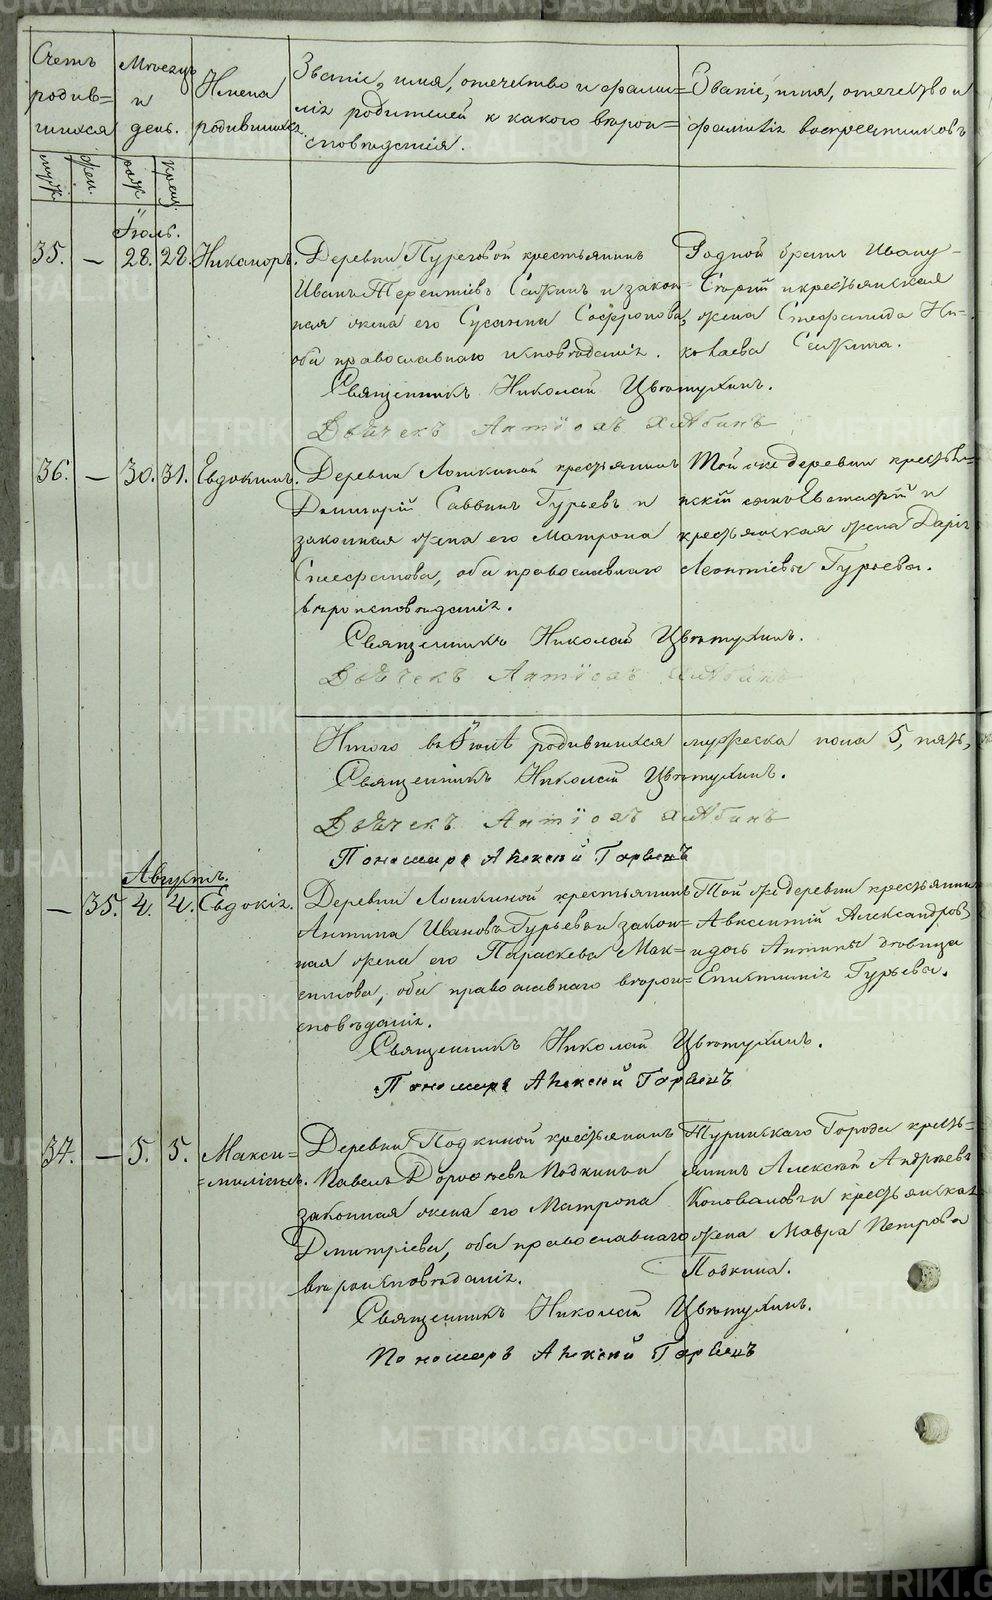 Счетъ родив=шихся
муж. жен.
Мѣсяцъ и день.
рож. крещ.
Имена родившихся.
Званіе, имя, отечество и фами=
лія родителей и какого вѣрои=
сповѣданія.
Званіе, имя, отечество и
фамилія воспріемниковъ
Іюль.
35. — 28. 28. Никаноръ.
Деревни Пуреговой крестьянинъ
Иванъ Терентіевъ Сажинъ и закон=
ная жена его Сусанна Софронова,
оба православнаго исповѣданія.
Родной братъ Ивану
Георгій и крестьянская
жена Стефанида Ни-
колаева Сажина.
Священникъ Николай Цвѣтухинъ.
Дьячекъ
36. — 30. 31. Евдокимъ.
Деревни Лошкиной крестьянинъ
Димитрій Саввинъ Гурьевъ и
законная жена его Матрона
Стефанова, оба православнаго
вѣроисповѣданія.
Той же деревни крестьян
скій сынъ Евстафій и
крестьянская жена Дарія
Леонтіева Гурьева.
Священникъ Николай Цвѣтухинъ.
Дьячекъ
Итого въ Іюлѣ родившихся мужеска пола 5, пять,
Священникъ Николай Цвѣтухинъ.
Дьячекъ
Пономарь Алексѣй
Августъ.
— 35. 4. 4. Евдокія.
Деревни Лошкиной крестьянинъ
Антипа Ивановъ Гурьевъ и закон=
ная жена его Параскева Мак=
симова, оба православнаго вѣрои=
сповѣданія.
Той же деревни крестьянинъ
Авксентій Александровъ
и дочь Антипы дѣвица
Епистимія Гурьева.
Священникъ Николай Цвѣтухинъ.
Пономарь Алексѣй
37. — 5. 5. Макси=
=миліанъ.
Деревни Подкиной крестьянинъ
Павелъ Дорофѣевъ Подкинъ и
законная жена его Матрона
Дмитріева, оба православнаго
вѣроисповѣданія.
Туринскаго Города кресть=
янинъ Алексѣй Андрѣевъ
Коноваловъ и крестьянская
жена Мавра Петрова
Подкина.
Священникъ Николай Цвѣтухинъ.
Пономарь Алексѣй
METRIKI.GASO-URAL.RU